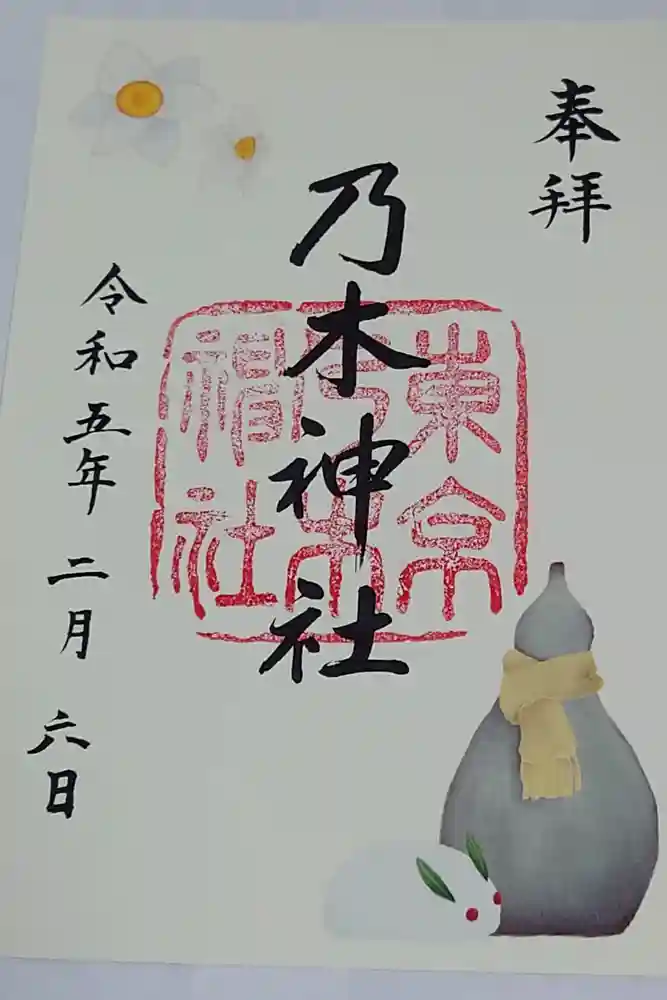 奉拝
乃木神社
東京
乃木
神社
令和五年二月六日